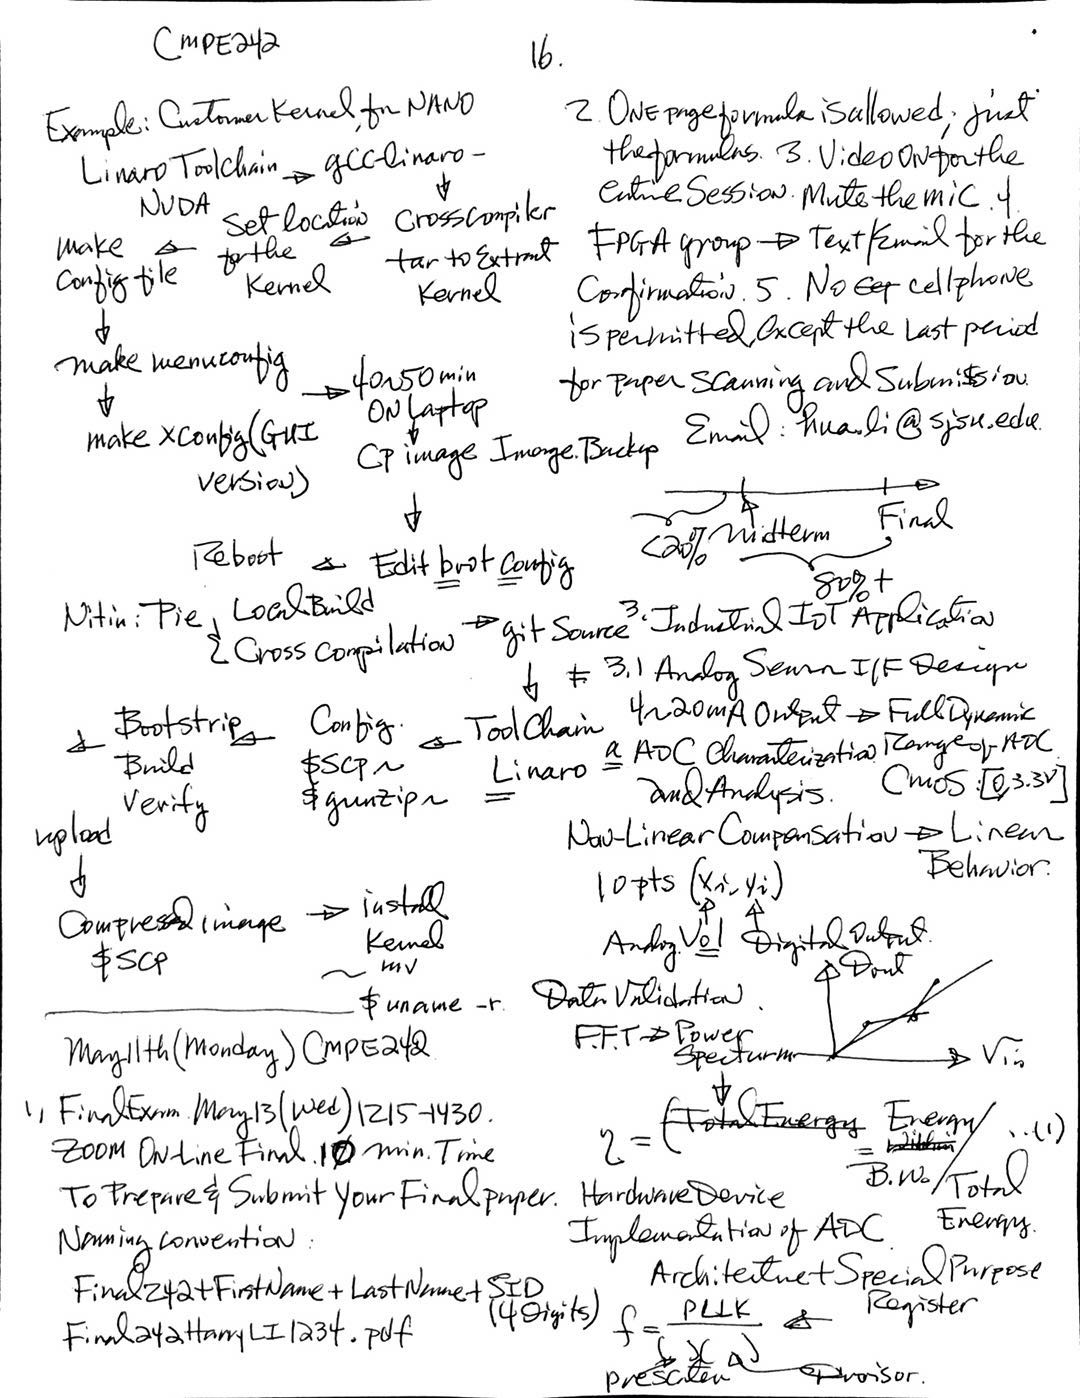 CMPE242
16.
Example: Customer Kernel for NANO
Linaro ToolChain → gCC-linaro-
NVDA
Set location
for the
Kernel
CrossCompiler
tar to Extract
Kernel
make
Config file
make menuconfig
make xconfig (GUI
version)
→ 40~50min
ON Laptop
Cp image Image.Backup
Reboot
Edit boot Config
Nitin: Pie, Local Build
2 Cross Compilation → git Source
ToolChain
Linaro
Config.
$SCP ~
$gunzip ~
Bootstrip
Build
Verify
upload
Compressed image
$SCP
→ install
Kernel
~ mv
$uname -r.
May 11th (Monday) CMPE242
1, Final Exam May 13 (Wed) 1215-1430.
ZOOM On-Line Final. 10 min. Time
To Prepare & Submit Your Final paper.
Naming convention:
Final242+FirstName+LastName+SID
(4 Digits)
Final242HarryLI1234.pdf
2. ONE page formula is allowed; just
the formulas. 3. Video ON for the
entire Session. Mute the mic. 4.
FPGA group → Text/Email for the
Confirmation. 5. No cellphone
is permitted, Except the Last period
for paper Scanning and Submission.
Email: hua.li@sjsu.edu.
<20% Midterm
Final
80%+
3. Industrial IoT Application
3.1 Analog Sensor I/F Design
4~20mA Output → Full Dynamic
Range of ADC
a ADC Characterization
and Analysis.
CMOS: [0, 3.3V]
Non-Linear Compensation → Linear
Behavior.
10 pts (xi, yi)
Analog Vol Digital Output.
Data Validation.
Dout
Vin
F.F.T → Power
Specturm
η = (Total Energy = Energy
B.W. / Total
Energy. ...(1)
Hardware Device
Implementation of ADC
Architecture + Special Purpose
Register
f = PLLK
( )( )
prescaler